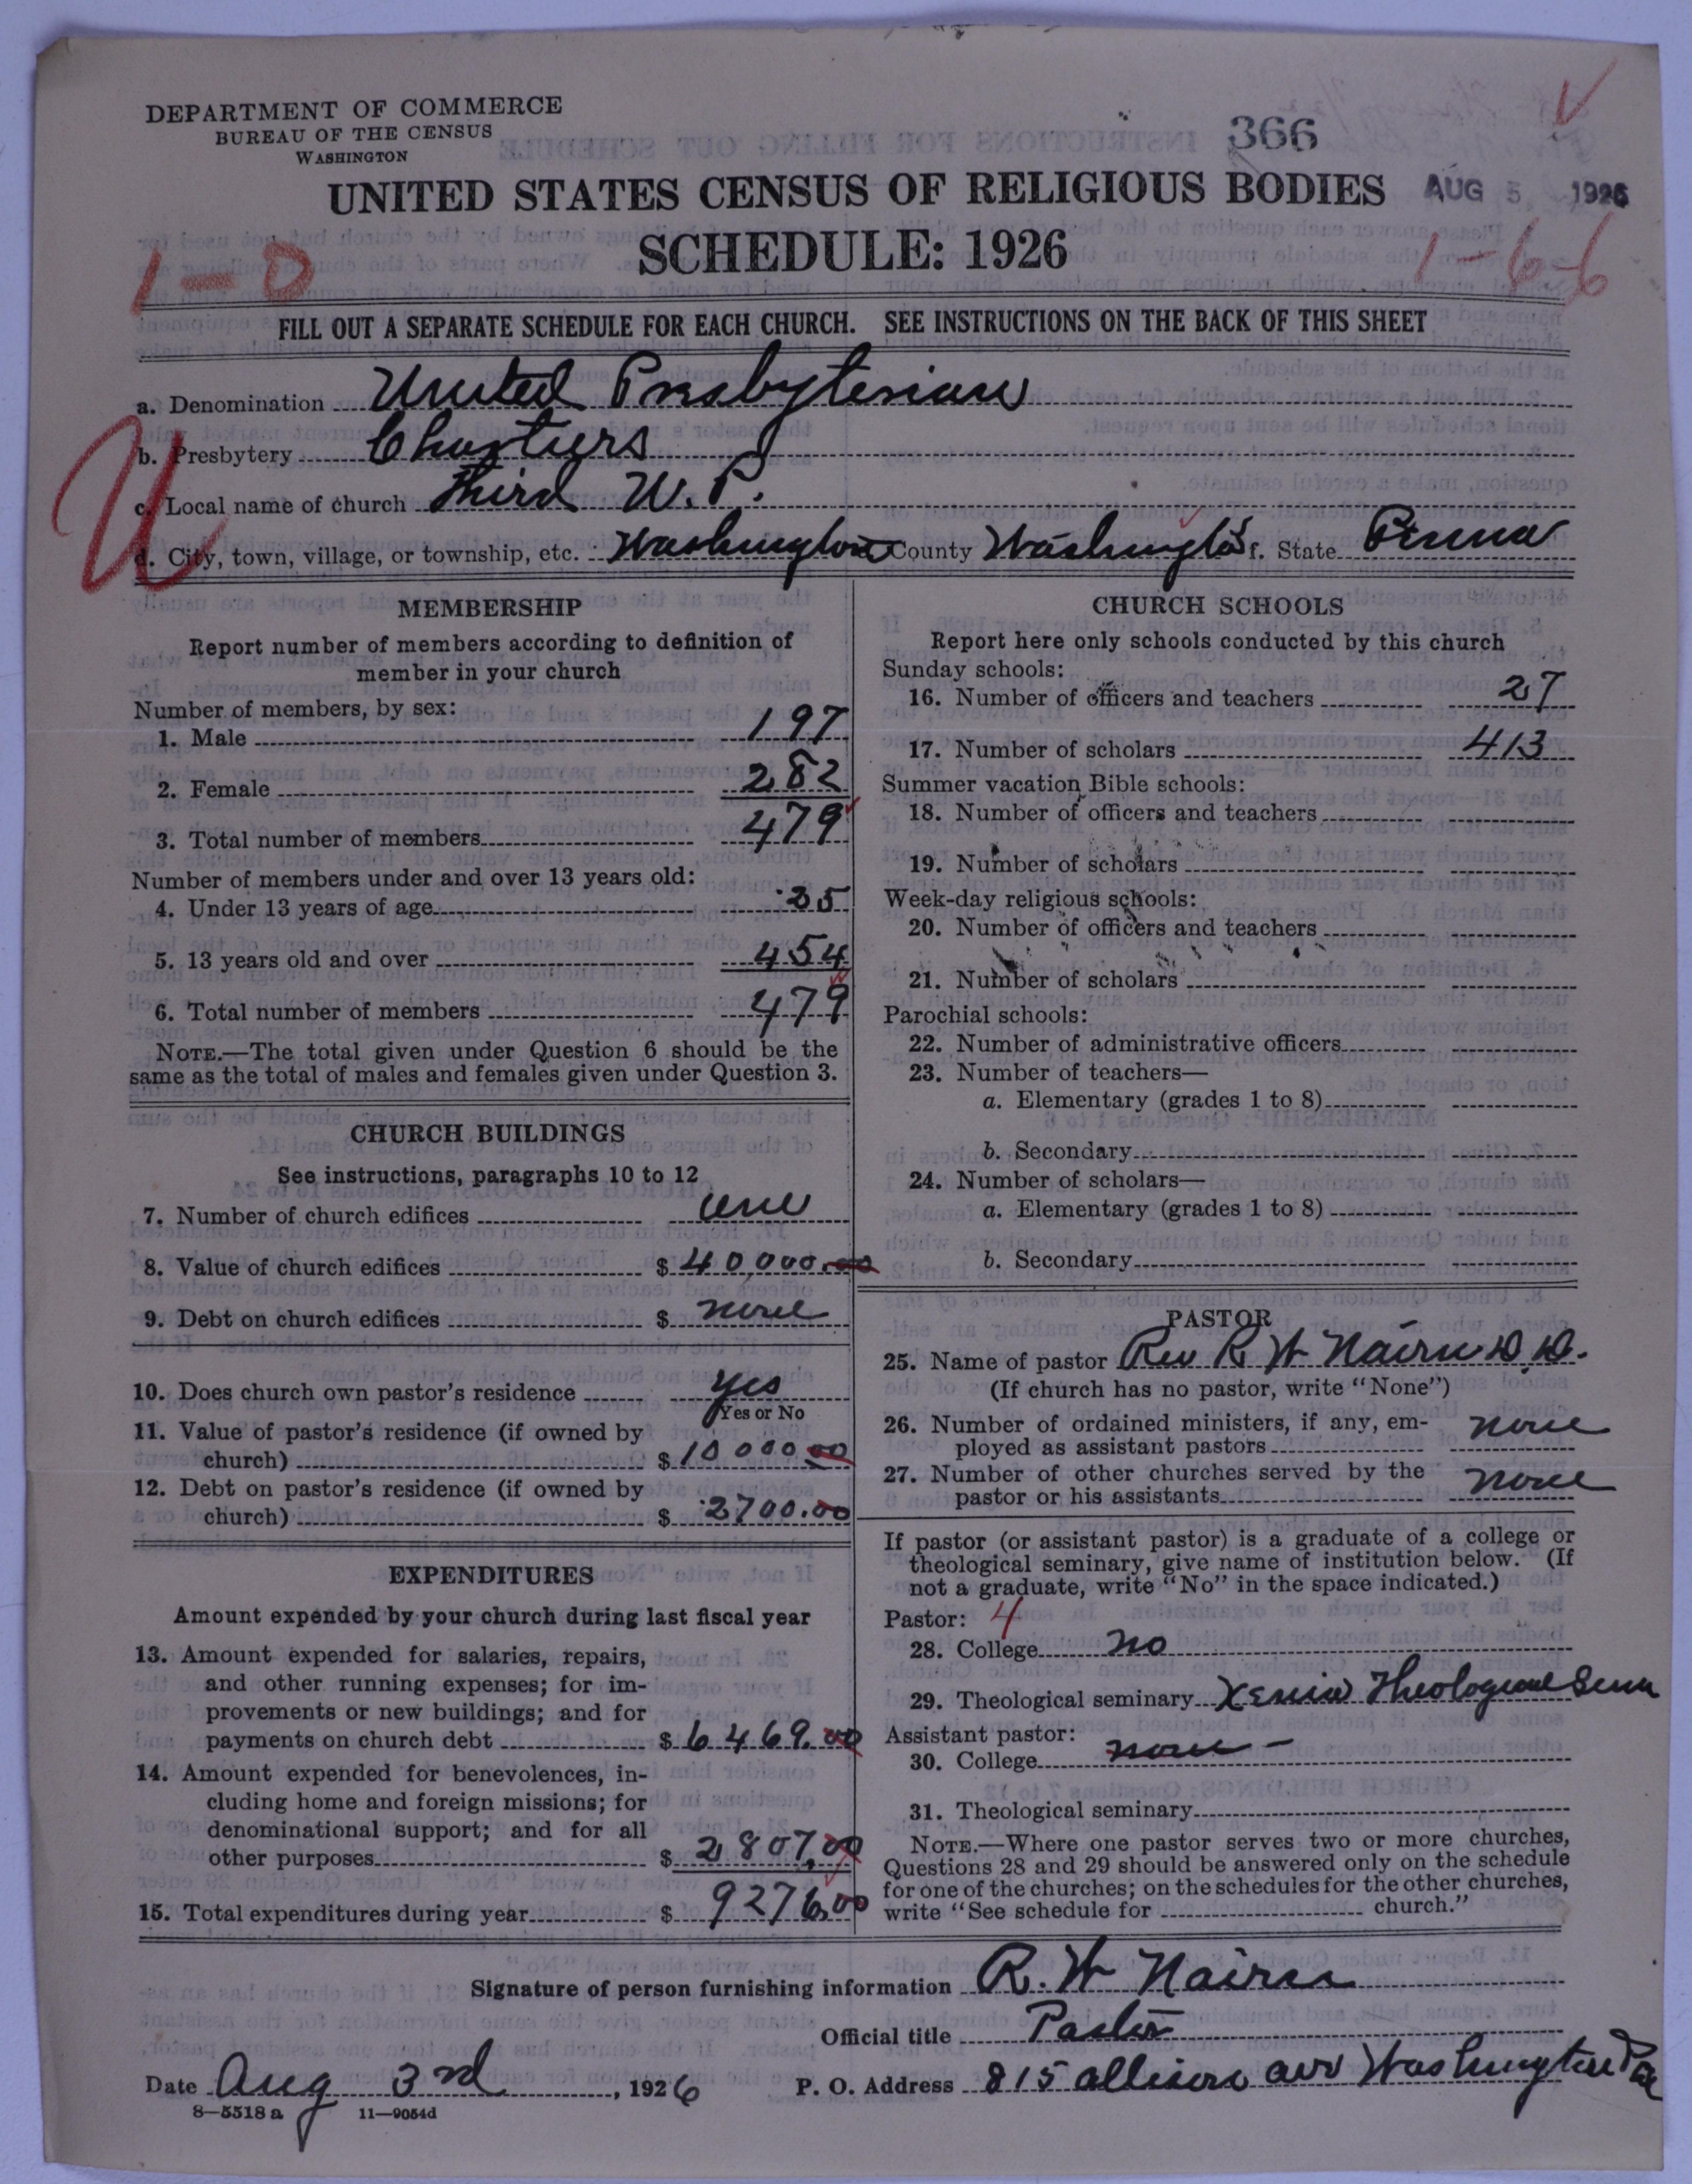 DEPARTMENT OF COMMERCE
BUREAU OF THE CENSUS
WASHINGTON
366
UNITED STATES CENSUS OF RELIGIOUS BODIES
AUG 5 1926
SCHEDULE: 1926
1-0
1-6-6
FILL OUT A SEPARATE SCHEDULE FOR EACH CHURCH. SEE INSTRUCTIONS ON THE BACK OF THIS SHEET
U
a. Denomination United Presbyterian
b. Presbytery Chartiers
c. Local name of church Third U. P.
d. City, town, village, or township, etc. Washington County Washington f. State Penna
MEMBERSHIP
Report number of members according to definition of
member in your church
Number of members, by sex:
1. Male 197
2. Female 282
3. Total number of members 479
Number of members under and over 13 years old:
4. Under 13 years of age 25
5. 13 years old and over 454
6. Total number of members 479
NOTE.—The total given under Question 6 should be the
same as the total of males and females given under Question 3.
CHURCH BUILDINGS
See instructions, paragraphs 10 to 12
7. Number of church edifices one
8. Value of church edifices $ 40,000.00
9. Debt on church edifices $ none
10. Does church own pastor's residence yes
Yes or No
11. Value of pastor's residence (if owned by
church) $ 10000.00
12. Debt on pastor's residence (if owned by
church) $ 2700.00
EXPENDITURES
Amount expended by your church during last fiscal year
13. Amount expended for salaries, repairs,
and other running expenses; for im-
provements or new buildings; and for
payments on church debt $ 6469.00
14. Amount expended for benevolences, in-
cluding home and foreign missions; for
denominational support; and for all
other purposes $ 2807.00
15. Total expenditures during year $ 9276.00
CHURCH SCHOOLS
Report here only schools conducted by this church
Sunday schools:
16. Number of officers and teachers 27
17. Number of scholars 413
Summer vacation Bible schools:
18. Number of officers and teachers
19. Number of scholars
Week-day religious schools:
20. Number of officers and teachers
21. Number of scholars
Parochial schools:
22. Number of administrative officers
23. Number of teachers—
a. Elementary (grades 1 to 8)
b. Secondary
24. Number of scholars—
a. Elementary (grades 1 to 8)
b. Secondary
PASTOR
25. Name of pastor Rev R W Nairn D.D.
(If church has no pastor, write "None")
26. Number of ordained ministers, if any, em-
ployed as assistant pastors none
27. Number of other churches served by the
pastor or his assistants none
If pastor (or assistant pastor) is a graduate of a college or
theological seminary, give name of institution below. (If
not a graduate, write "No" in the space indicated.)
Pastor: 4
28. College no
29. Theological seminary Xenia Theological Sem
Assistant pastor:
30. College none -
31. Theological seminary
NOTE.—Where one pastor serves two or more churches,
Questions 28 and 29 should be answered only on the schedule
for one of the churches; on the schedules for the other churches,
write "See schedule for church."
Signature of person furnishing information R. W Nairn
Official title Pastor
Date Aug 3rd, 1926
P. O. Address 815 Allison ave Washington Pa
8—5518 a 11—9054d